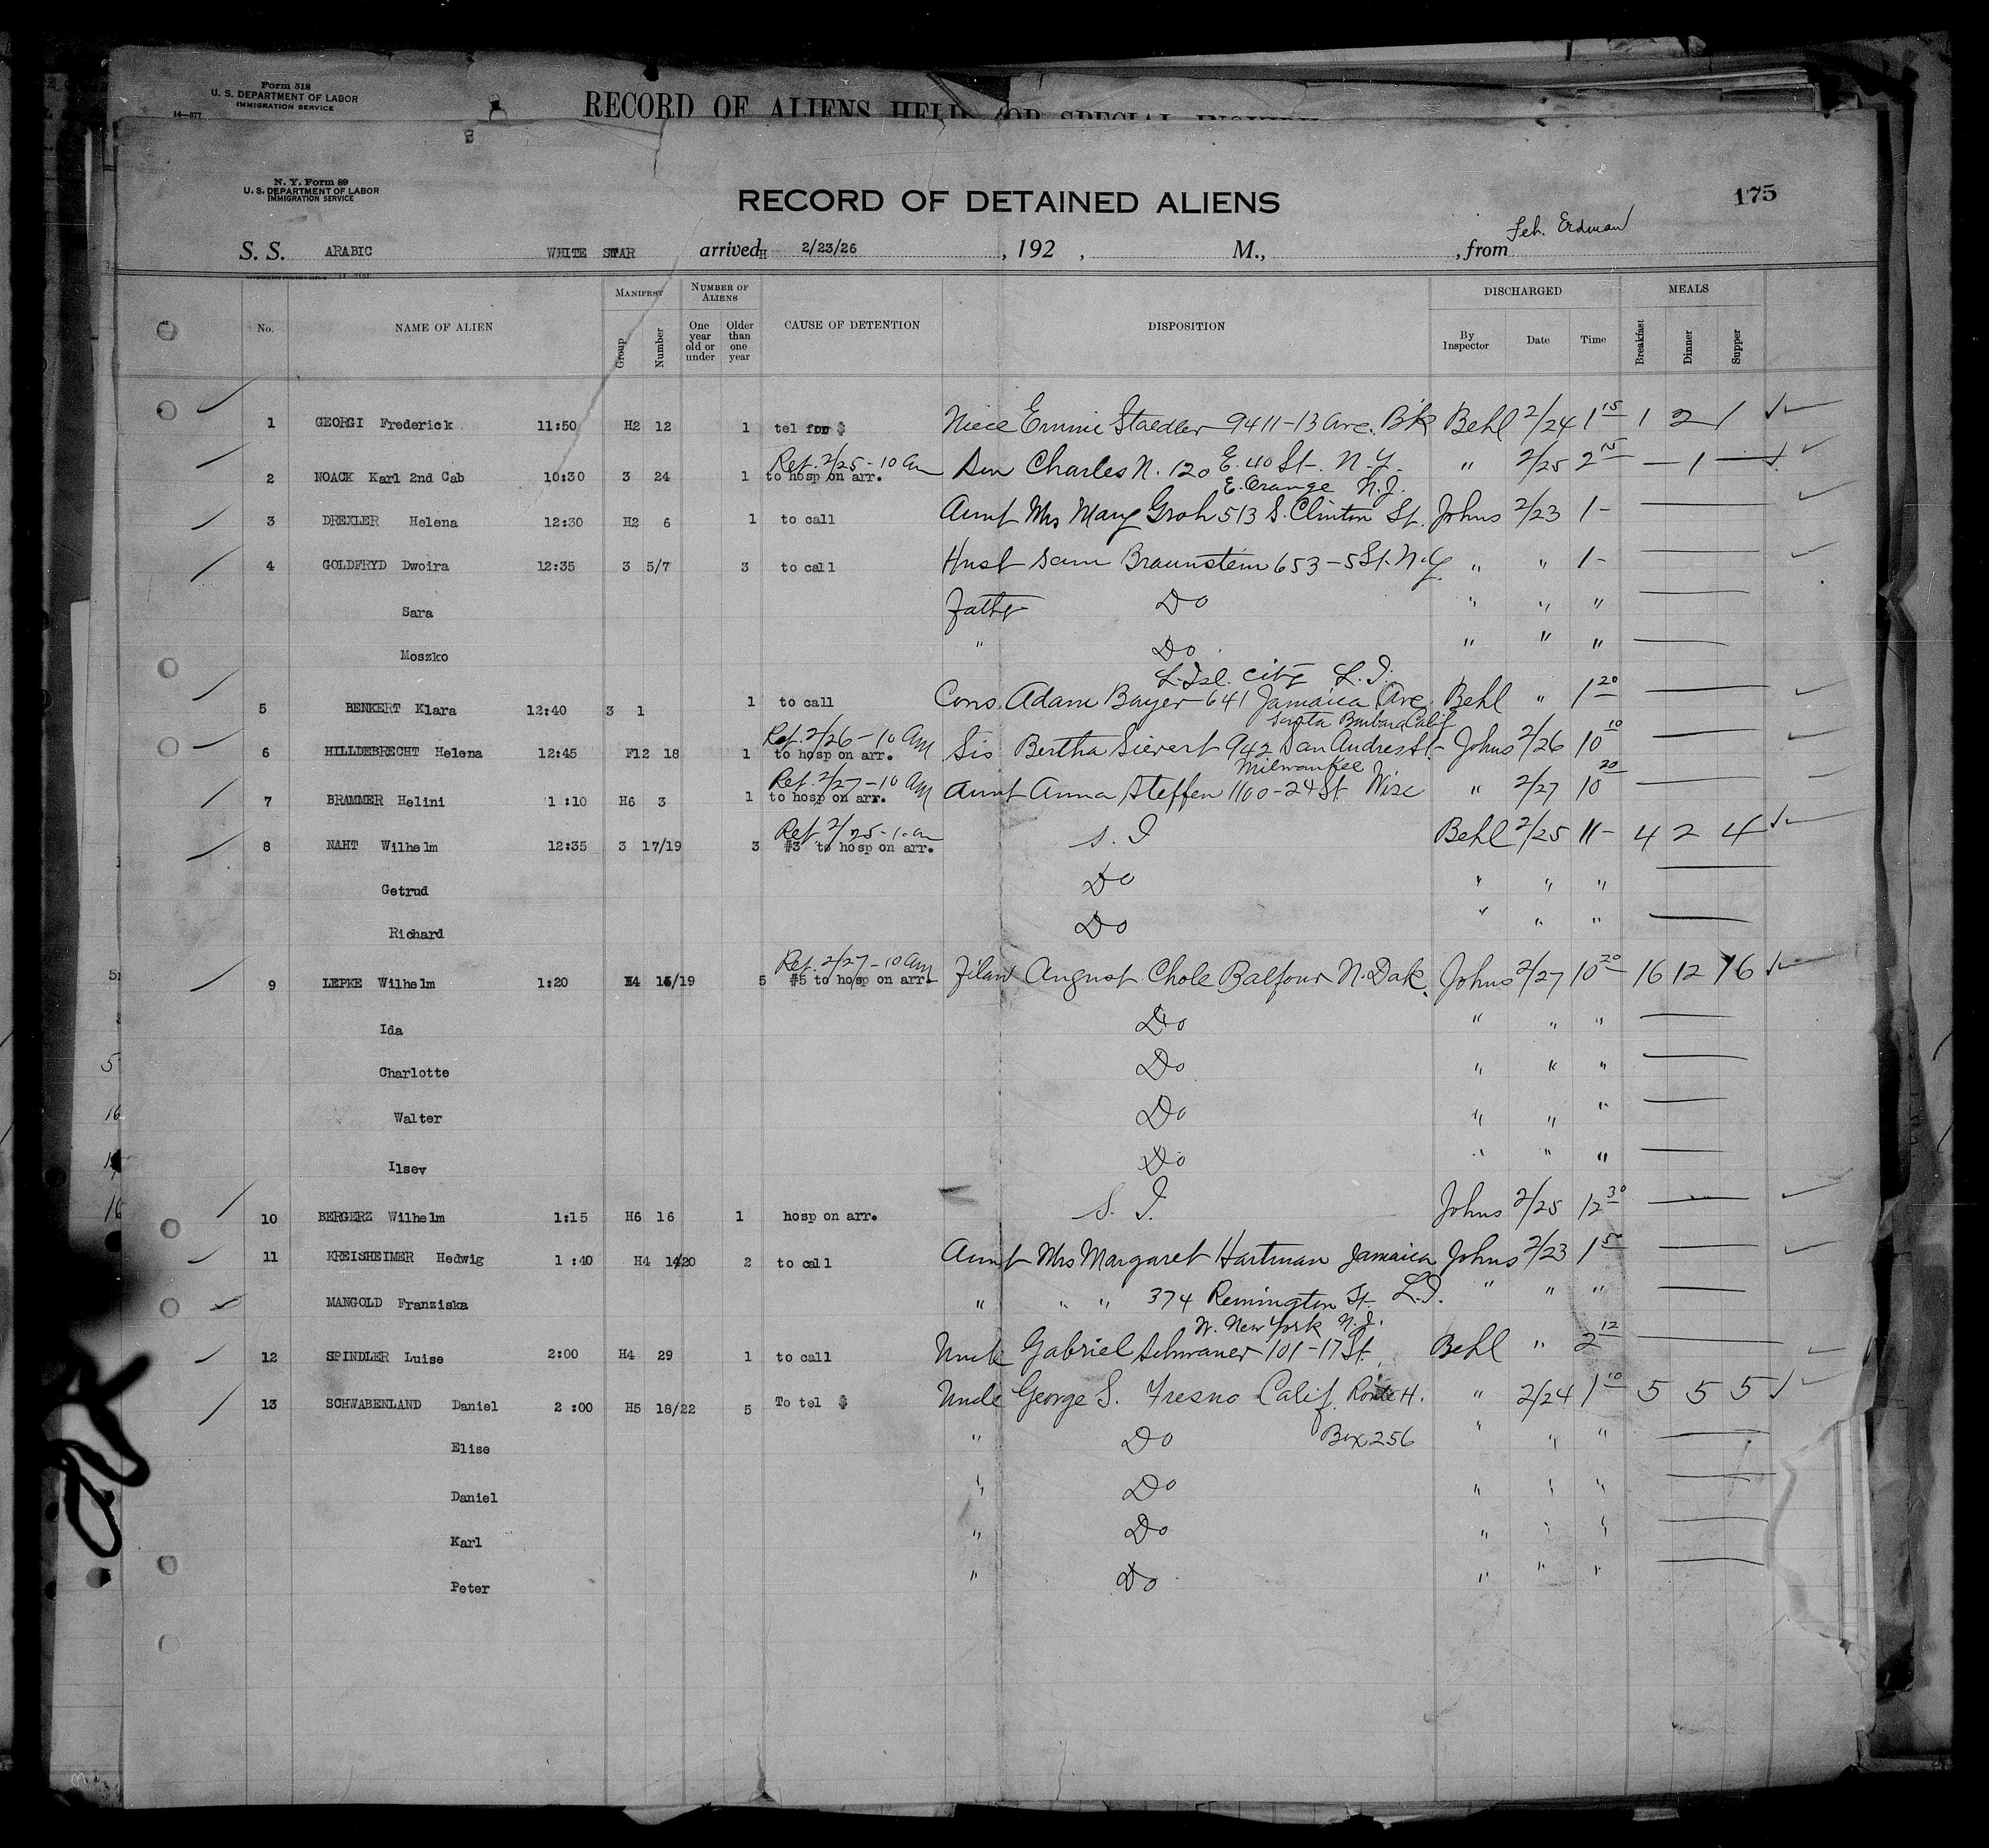 Form 518
U. S. DEPARTMENT OF LABOR
IMMIGRATION SERVICE
14—377
RECORD OF ALIENS HELD FOR SPECIAL INQUIRY
N. Y. Form 89
U. S. DEPARTMENT OF LABOR
IMMIGRATION SERVICE
RECORD OF DETAINED ALIENS
175
S. S. ARABIC WHITE STAR arrived 2/23/26, 192 , M., , from Feh. Erdman
No. NAME OF ALIEN MANIFEST Group Number NUMBER OF ALIENS One year old or under Older than one year CAUSE OF DETENTION DISPOSITION DISCHARGED By Inspector Date Time MEALS Breakfast Dinner Supper
1 GEORGI Frederick 11:50 H2 12 1 tel for $ Niece Emmi Staedler 9411-13 Ave. B'k Behl 2/24 1 15 1 2 1
Ref. 2/25-10 am
2 NOACK Karl 2nd Cab 10:30 3 24 1 to hosp on arr. Son Charles N. 120 E. 40 St. N.Y. " 2/25 2 15 — 1 —
E. Orange N.J.
3 DREXLER Helena 12:30 H2 6 1 to call Aunt Mrs Mary Groh 513 S. Clinton St. Johns 2/23 1-
4 GOLDFRYD Dwoira 12:35 3 5/7 3 to call Husb Sam Braunstein 653-5 St. N.Y. " " 1-
Sara Father Do " " "
Moszko " Do " " "
L. Isl. City L.I.
5 BENKERT Klara 12:40 3 1 1 to call Cons. Adam Bayer 641 Jamaica Ave. Behl " 1 20
Ref. 2/26-10 AM Santa Barbara Calif
6 HILLDEBRECHT Helena 12:45 F12 18 1 to hosp on arr. Sis Bertha Sievert 942 San Andres St- Johns 2/26 10 10
Ref. 2/27-10 AM Milwaukee
7 BRAMMER Helini 1 :10 H6 3 1 to hosp on arr. Aunt Anna Steffen 1100-24 St. Wisc " 2/27 10 20
Ref. 2/25-
8 NAHT Wilhelm 12:35 3 17/19 3 #3 to hosp on arr. S. I Behl 2/25 11- 4 2 4
Getrud Do " " "
Richard Do " " "
Ref. 2/27-10 AM
9 LEPKE Wilhelm 1:20 H4 15/19 5 #5 to hosp on arr. August Chole Balfour N. Dak. Johns 2/27 10 20 16 12 16
Ida Do " " "
Charlotte Do " " "
Walter Do " " "
Ilsev Do " " "
10 BERGERZ Wilhelm 1:15 H6 16 1 hosp on arr. S. I. Johns 2/25 12 30
11 KREISHEIMER Hedwig 1 :40 H4 14/20 2 to call Aunt Mrs Margaret Hartman Jamaica Johns 2/23 1 50
MANGOLD Franziska " " " 374 Remington St. L.I. " " "
W. New York N.J.
12 SPINDLER Luise 2:00 H4 29 1 to call Uncle Gabriel Schwaner 101-17 St. Behl " 2 12
13 SCHWABENLAND Daniel 2 :00 H5 18/22 5 To tel $ Uncle George S. Fresno Calif. Route H. " 2/24 1 10 5 5 5
Elise " Do Box 256 " " "
Daniel " Do " " "
Karl " Do " " "
Peter " Do " " "